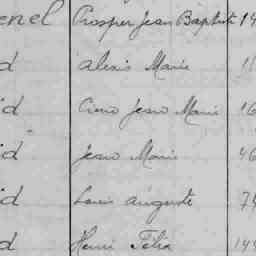 enel Prosper Jean Baptist 14
d Alexis Marie
id Jean Marie 16
id Jean Marie 46
id Louis Auguste 74
d Henri Félix 144